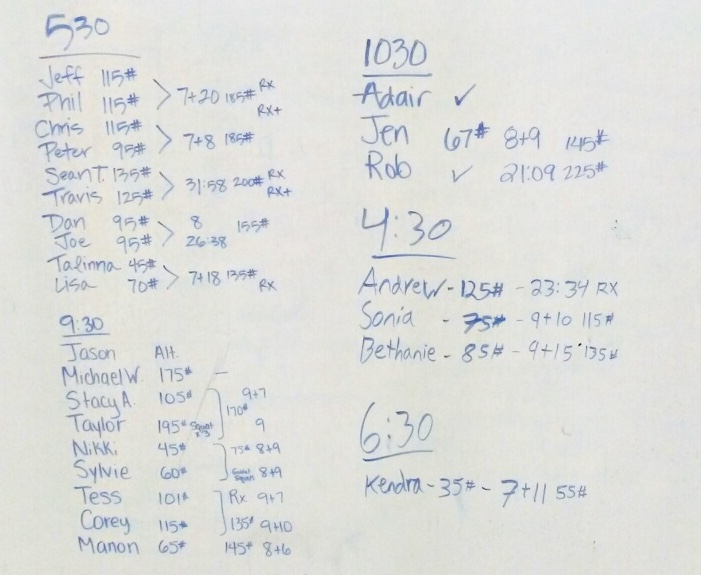 530
Jeff 115#
Phil 115# > 7+20 185# RX
RX+
Chris 115#
Peter 95# > 7+8 185#
Sean T. 135#
Travis 125# > 31:58 200# RX
RX+
Dan 95# > 8 155#
Joe 95# 26:38
Talinna 45#
Lisa 70# > 7+18 135#
RX
9:30
Jason Alt.
Michael W. 175# —
Stacy A. 105# 9+7
170#
Taylor 195# Squat x3 9
Nikki 45# 75# 8+9
Sylvie 60# 8+9
Tess 101# Rx 9+7
Corey 115# 135# 9+10
Manon 65# 145# 8+6
1030
Adair ✓
Jen 67# 8+9 145#
Rob ✓ 21:09 225#
4:30
Andrew - 125# - 23:34 RX
Sonia - 75# - 9+10 115#
Bethanie - 85# - 9+15 135#
6:30
Kendra - 35# - 7+11 55#